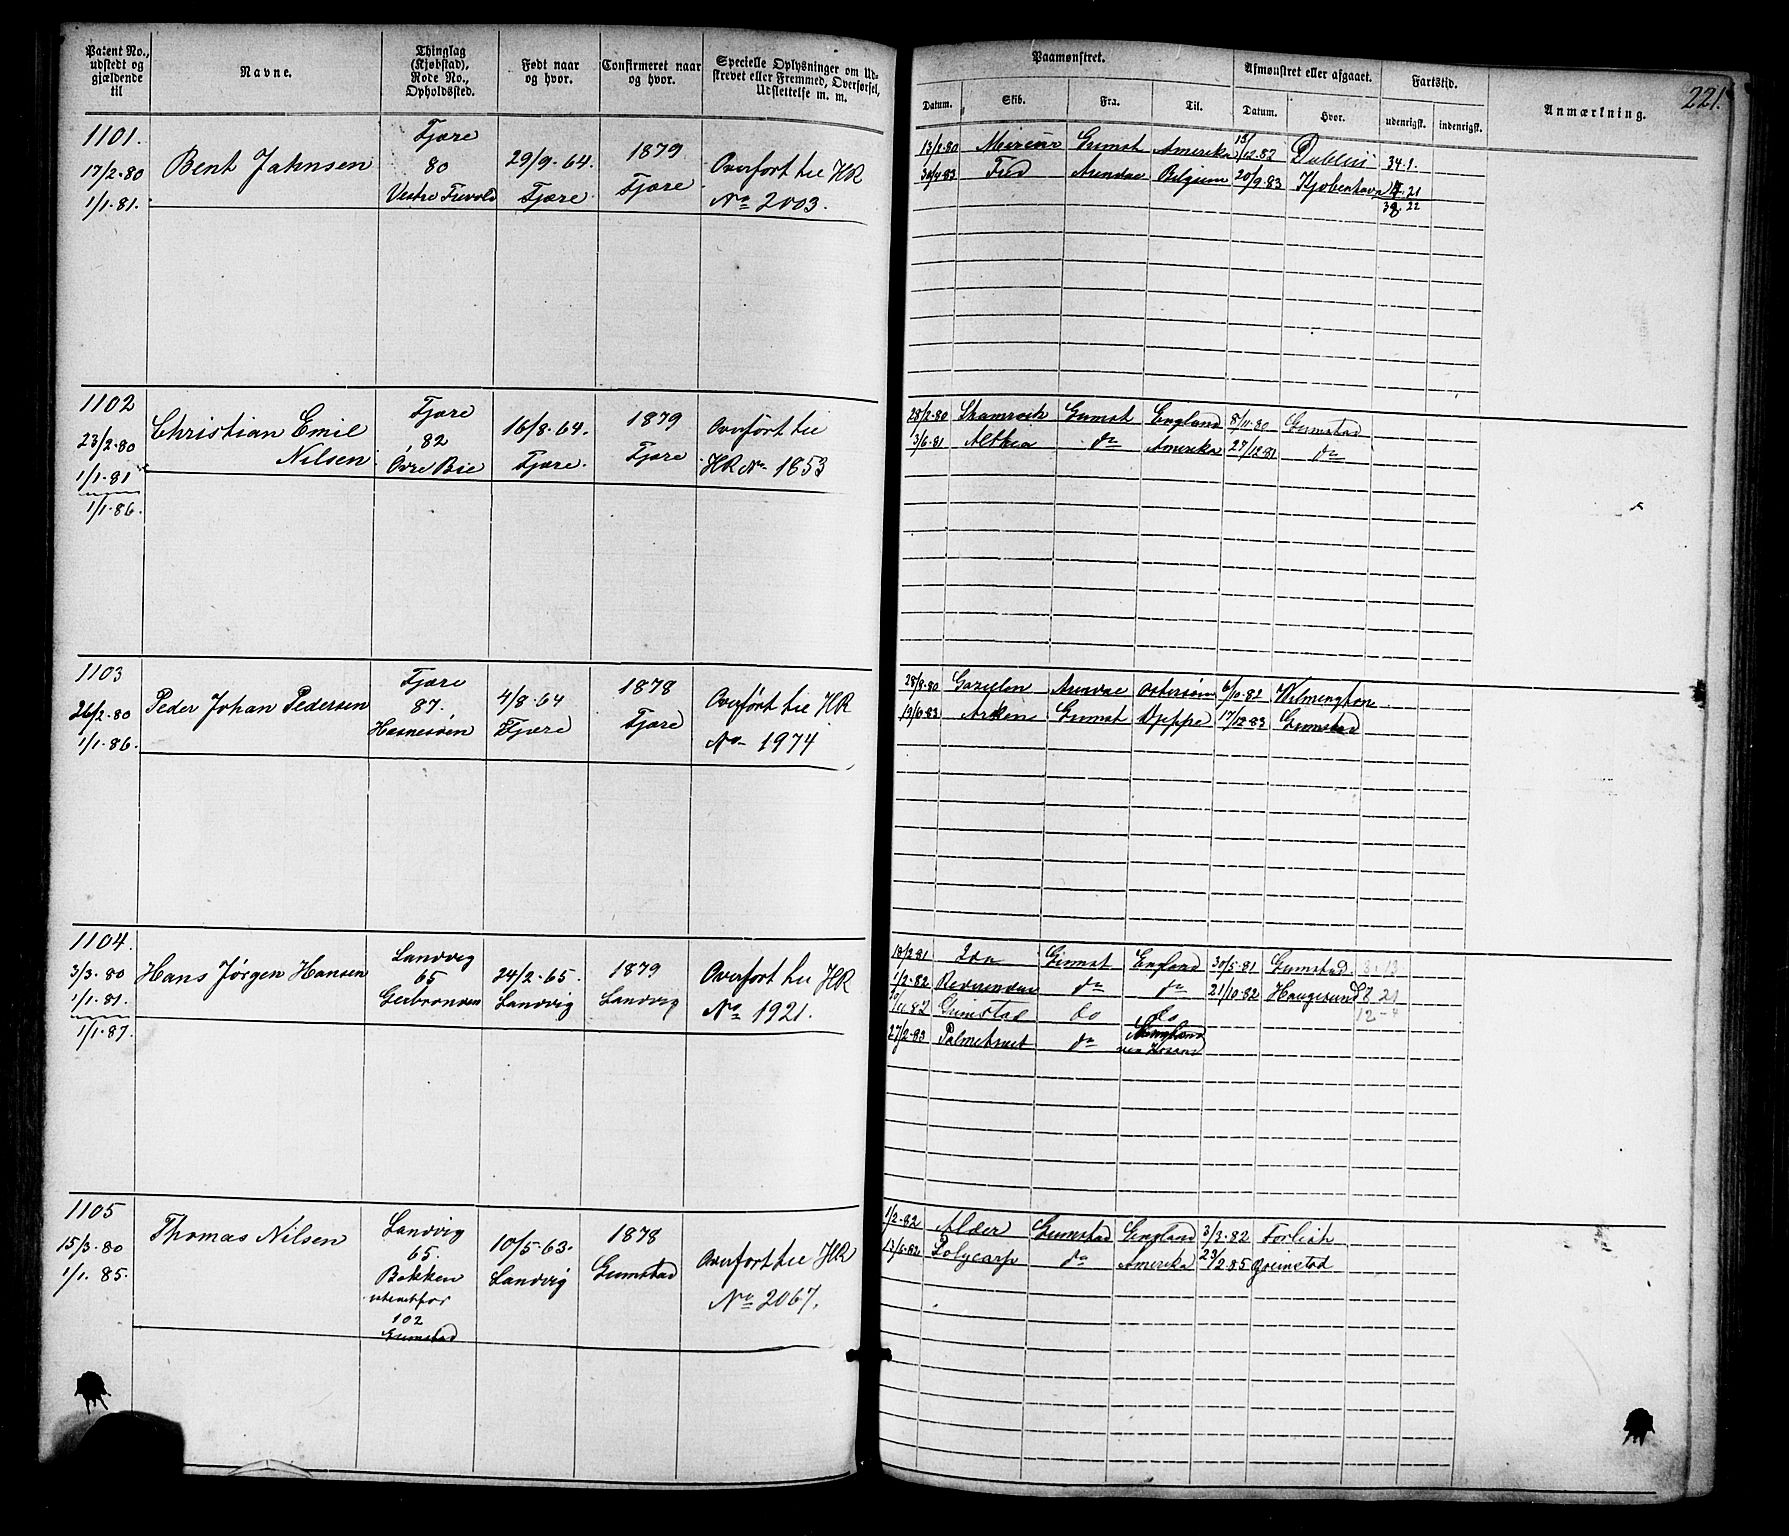 Patent No., udstedt og gjældende til
Navne.
Thinglag (Kjøbstad), Rode No., Opholdssted.
Født naar og hvor.
Confirmeret naar og hvor.
Specielle Oplysninger om Udskrevet eller Fremmed, Overførsel, Udslettelse m. m.
Paamønstret.
Datum. Skib. Fra. Til.
Afmønstret eller afgaaet.
Datum. Hvor.
Fartstid.
udenrigsk. indenrigsk.
Anmærkning.
221.
1101.
17/2-80
1/1.81.
Bent Jahnsen
Fjære
80
29/9-64.
Fjære
1879
Fjære
Overført til HR
No 2003.
13/2.80 Mercur Grimst Amerika 12.82 Dublin 34.1.
30/4.83 Arendal Belgien 20/9.83 Kjøbenhavn 21
38.22
1102
23/2-80
1/1.81
1/1.86.
Christian Emil
Nilsen
Fjære
82
Øvre Bie
16/8-64.
Fjære
1879
Fjære
Overført til
HR No 1853
28/2.80 Shamrock Grimst England 8/11.80 Grimstad
3/6.81 Althea do Amerika 27/12.81 do
1103
26/2-80
1/1.86.
Peder Johan Pedersen
Fjære
87.
Hasnesøen
4/8-64
Fjære
1878
Fjære
Overført til HR
No 1974
28/8.80 Gazellen Arendal Østersøen 6/10.82 Wilmington
Grimst Dieppe 17/12.83 Grimstad
1104.
3/3-80
1/1.81.
1/1.87.
Hans Jørgen Hansen
Landvig
65
24/2-65.
Landvig
1879
Landvig
Overført til HR
No 1921.
18/2.81 Grimst England 30/5.81 Grimstad 8.13
1/2.82 do do 21/10.82 Haugesund 8 21
Grimstad do do 12-4
27/2.83 Palmetræet do England
1105
15/3-80
1/1.85.
Thomas Nilsen
Landvig
65.
Bakken
udenfor
102
Grimstad
10/5-63.
Landvig
1878
Grimstad
Overført til HR
No 2067.
1/2.82 Alder Grimstad England 3/3.82
13/6.82 Polycarp do Amerika 23/2.85 Grimstad